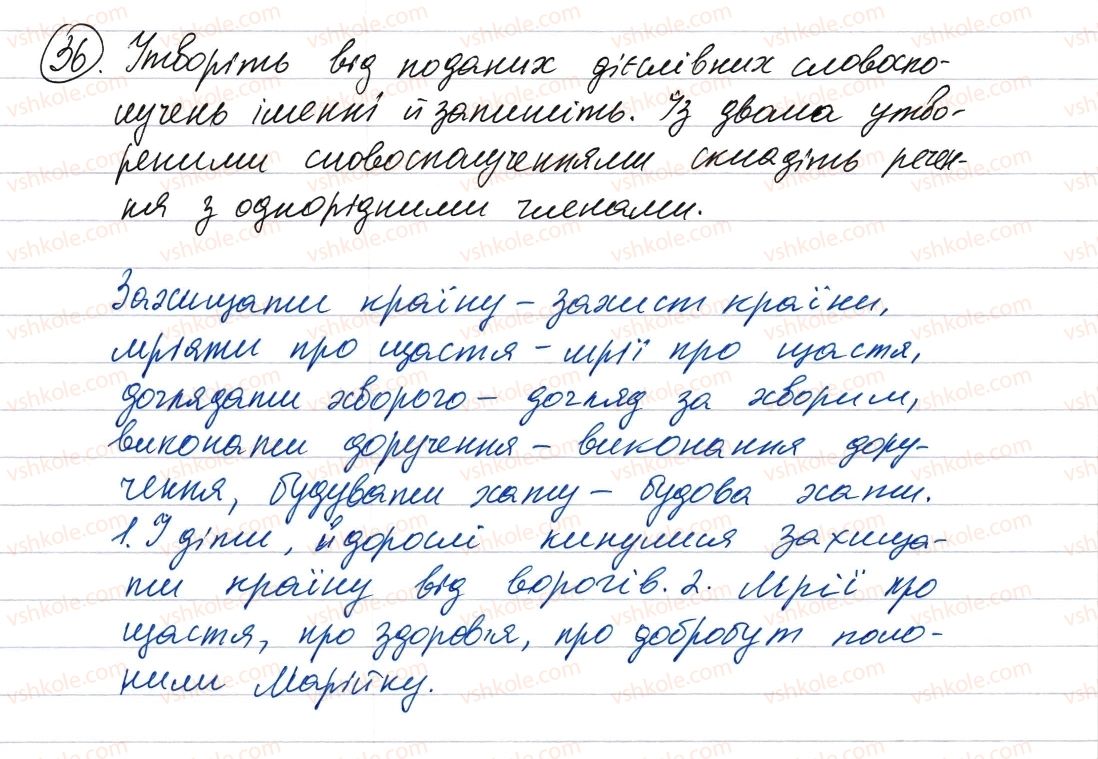 36. Утворіть від поданих дієслівних словоспо-
лучень іменні й запишіть. Із двома утво-
реними словосполученнями складіть речен-
ня з однорідними членами.
Захищати країну – захист країни,
мріяти про щастя – мрії про щастя,
доглядати хворого – догляд за хворим,
виконати доручення – виконання дору-
чення, будувати хату – будова хати.
1. І діти, й дорослі кинулися захища-
ти країну від ворогів. 2. Мрії про
щастя, про здоров'я, про добробут поло-
нили Марійку.